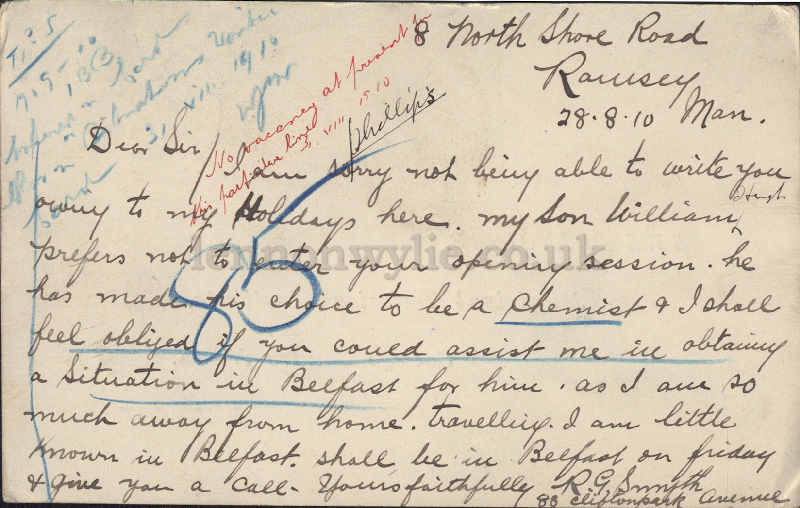 8 North Shore Road
Ramsey
28.8.10 Man.
No vacancy at present in
this particular line
31. VIII. 1910
Phillips
31 VIII 1910
Dear Sir/ I am sorry not being able to write you
owing to my Holidays here. my son William
Hugh
prefers not to enter your opening session. he
has made his choice to be a Chemist & I shall
feel obliged if you could assist me in obtaining
a Situation in Belfast for him. as I am so
much away from home. travelling. I am little
known in Belfast. shall be in Belfast on friday
& give you a call. Yours faithfully R G Smyth
88 Cliftonpark Avenue
85
lennonwylie.co.uk